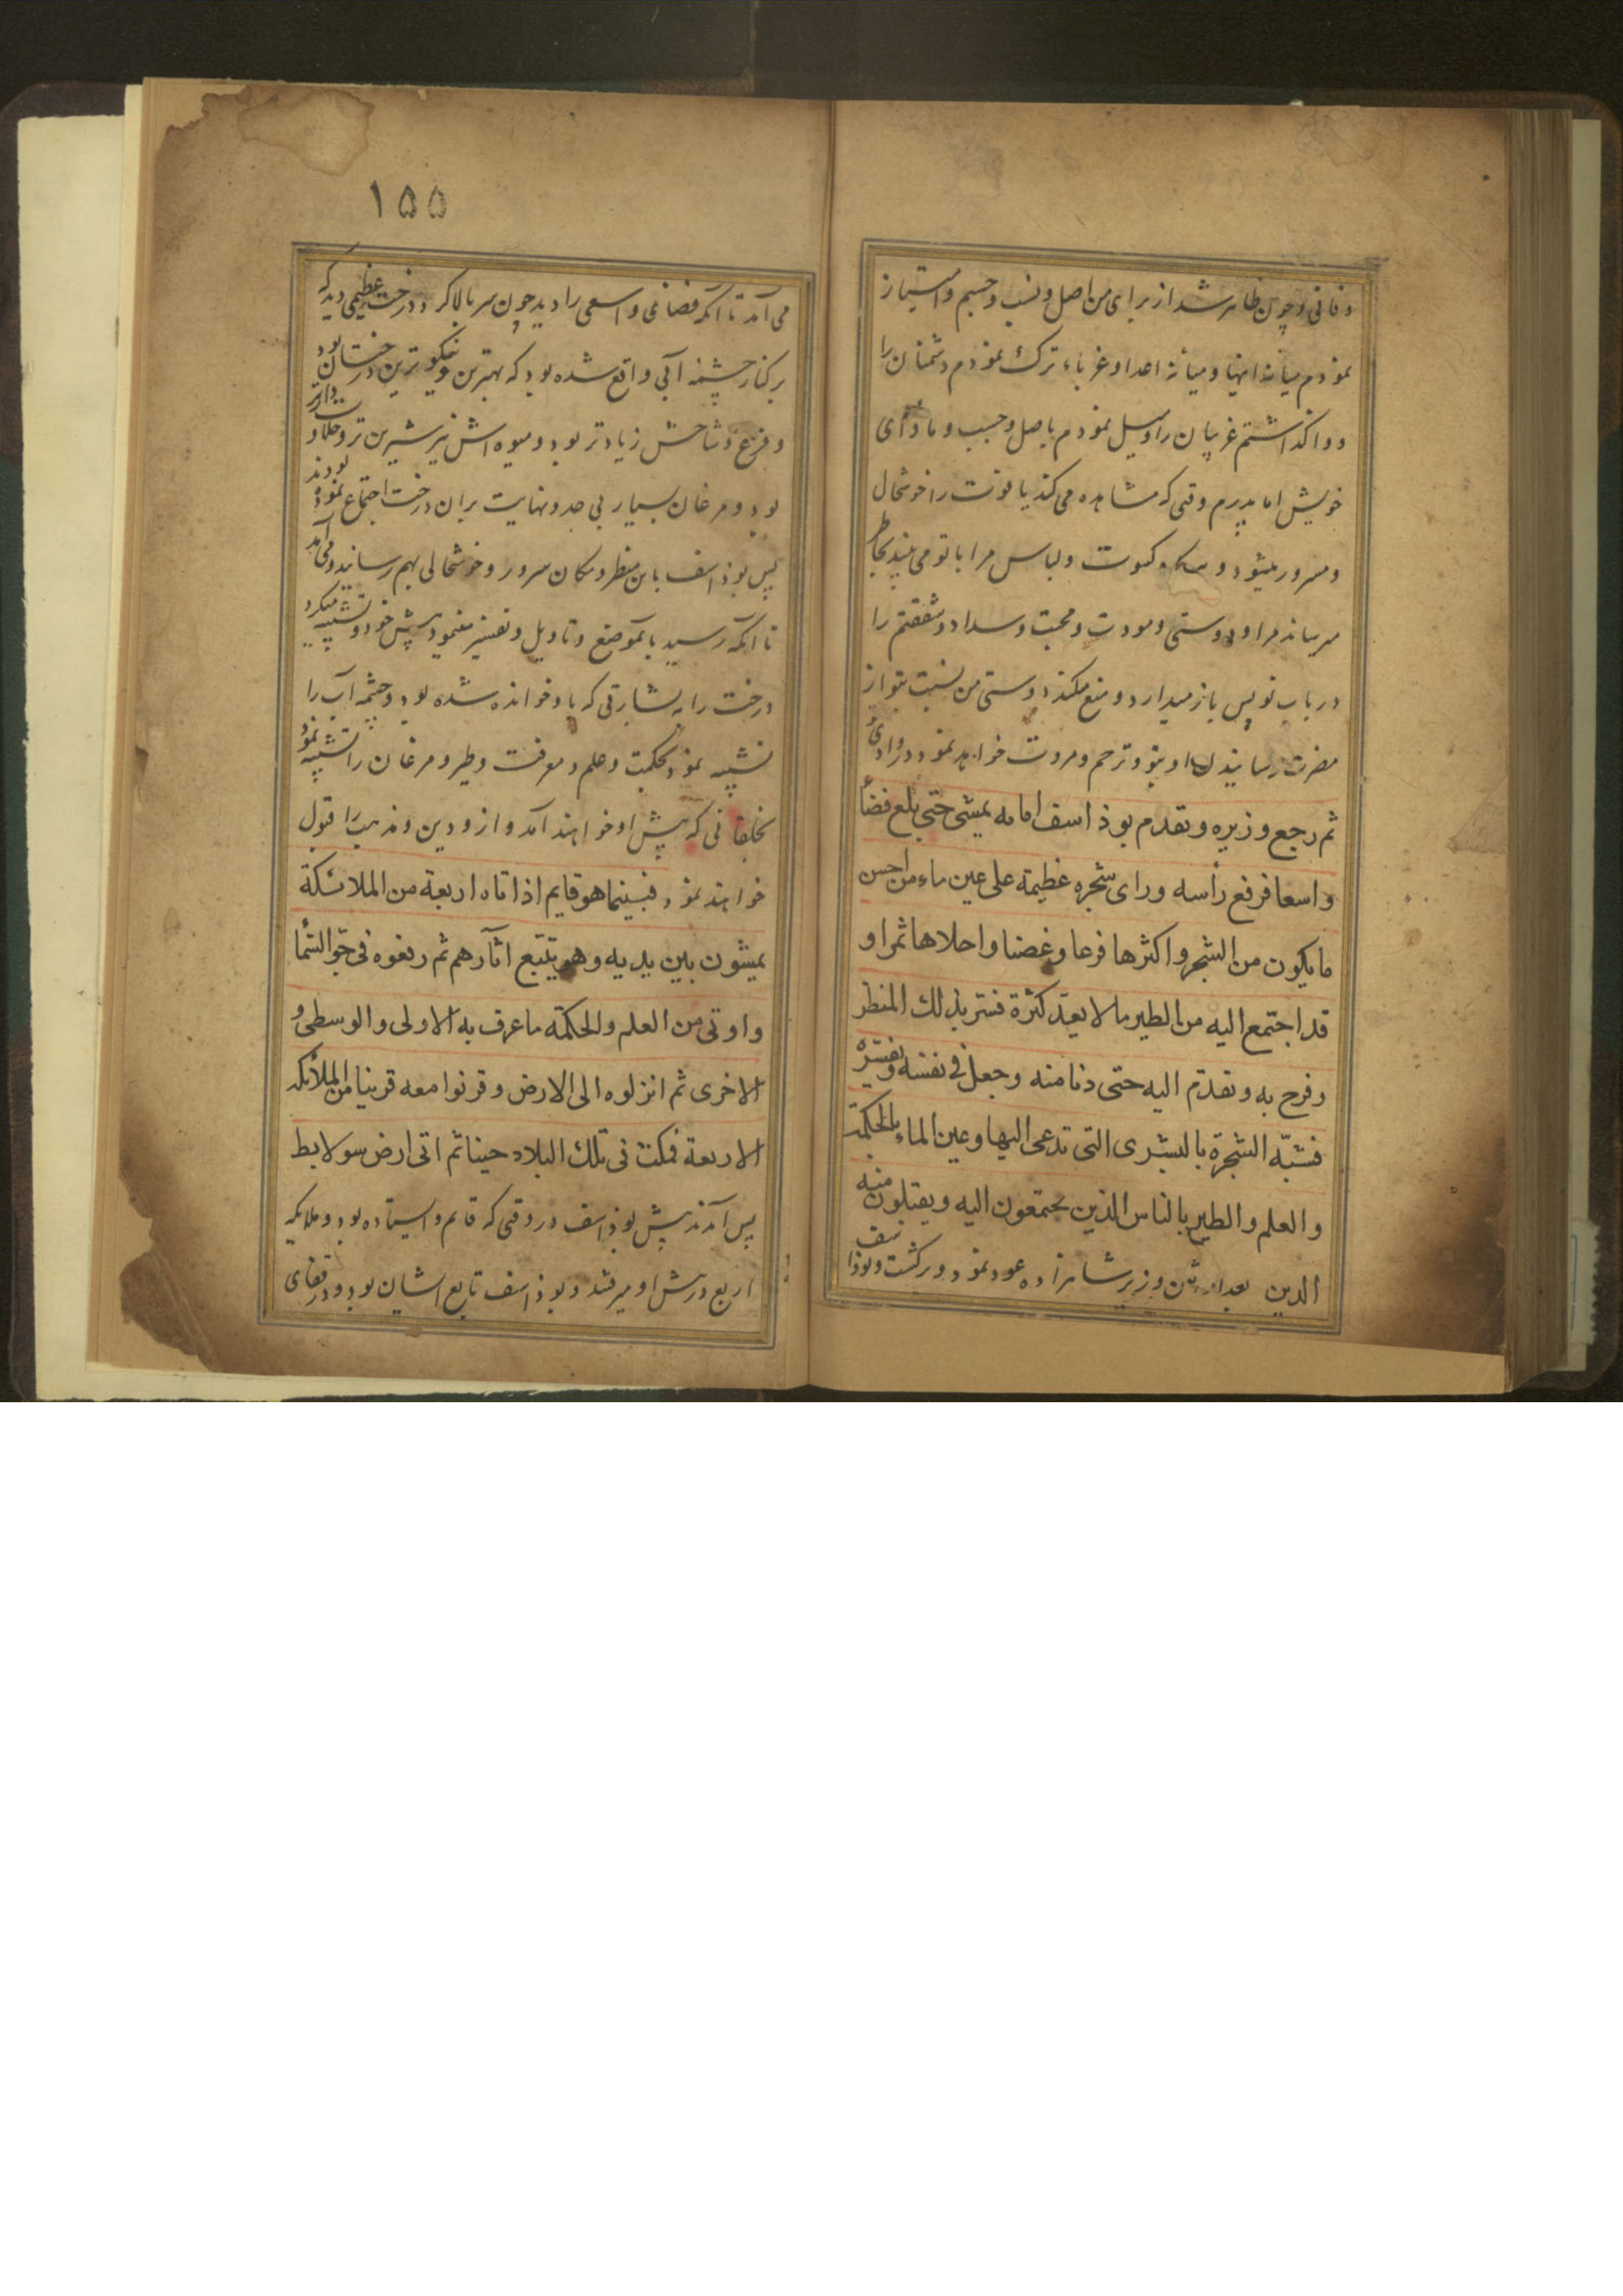 و فانی و چون ظاهر شد از برای من اصل و نسب و جسم و امتیاز
نمودم میانه اینها و میانه اعدا و غرباء ترک نمودم دشمنان را
و واگذاشتم غریبان را و میل نمودم باصل و حسب و ماوای
خویش اما پدرم وقتی که مشاهده می کند یاقوت را خوشحال
و مسرور میشود و کسوت و لباس مرا با تو می بیند بخاطر
میرساند مرا و دوستی و مودت و محبت و سداد و شفقتم را
در باب تو پس باز میدارد و منع میکند دوستی من نسبت بتو از
مضرت رسانیدن او بتو و ترحم و مروت خواهد نمود در وادی
ثم رجع وزیره و تقدم بوذاسف امامه یمشی حتی بلغ فضاء
واسعا فرفع رأسه ورای شجره عظیمة علی عین ماء من احسن
ما یکون من الشجر و اکثرها فرعا و غصنا و احلاها ثمرا و
قد اجتمع الیه من الطیر ما لا یعدّ کثرة فسر بذلك المنظر
و فرح به و تقدم الیه حتی دنا منه و جعل فی نفسه و یفسّره
فشبّه الشجرة بالبشری التی تدعی الیها و عین الماء بالحکمة
و العلم و الطیر بالناس الذین یجتمعون الیه و یقبلون منه
الدین بعد از این وزیر شاهزاده عود نمود و برگشت و بوذاسف
۱۵۵
می آمد تا آنکه فضائی واسعی را دید چون سر بالا کرد درخت عظیمی دید که
بر کنار چشمه آبی واقع شده بود که بهترین و نیکوترین درختان بود
و فرع و شاخش زیادتر بود و میوه اش نیز شیرین تر و حلاوت دارتر
بود و مرغان بسیار بی حد و نهایت بران درخت اجتماع نموده بودند
پس بوذاسف باین منظر و مکان سرور و خوشحالی بهم رسانید و می آمد
تا آنکه رسید بآنموضع و تاویل و تفسیر مینمود پیش خود و تشبیه میکرد
درخت را به بشارتی که باو خوانده شده بود و چشمه آب را
تشبیه نمود بحکمت و علم و معرفت و طیر و مرغان را تشبیه نمود
بخلقانی که پیش او خواهند آمد و ازو دین و مذهب را قبول
خواهند نمود فبینما هو قایم اذ اتاه اربعة من الملائکة
یمشون بین یدیه و هو یتبع اثارهم ثم رفعوه فی جوّ السّماء
و اوتی من العلم والحکمة ما عرف به الاولی و الوسطی و
الاخری ثم انزلوه الی الارض و قرنوا معه قرینا من الملائکه
الاربعة فمکث فی تلك البلاد حینا ثم اتی ارض سولابط
پس آمدند پیش بوذاسف در وقتی که قایم و ایستاده بود و ملایکه
اربع در پیش او میرفتند و بوذاسف تابع ایشان بود و در قفای